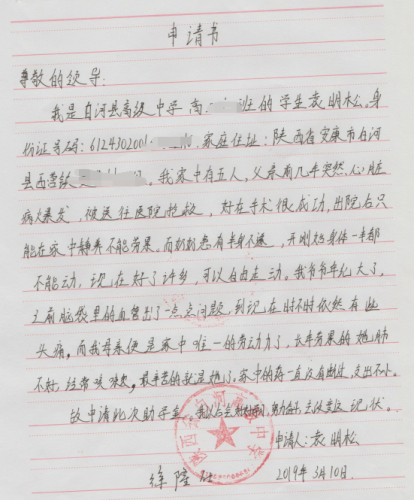 申请书
尊敬的领导:
我是白河县高级中学高 班的学生袁明松,身
份证号码:6124302001 ,家庭住址:陕西省安康市白河
县西营镇 。我家中有五人,父亲前几年突然心脏
病爆发,被送往医院抢救,好在手术很成功,出院后只
能在家中静养不能劳累。而奶奶患有半身不遂,开刚始身体一半都
不能动,现在好了许多,可以自由走动。我爷爷年纪大了,
之前脑袋里的血管出了一点点问题,到现在时不时依然有些
头痛,而我母亲便是家中唯一的劳动力了,长年劳累的她,肺
不好,经常咳嗽,最辛苦的就是她了,家中的药一直没有断过,支出不小。
故申请此次助学金,
申请人:袁明松
徐隆
2019年3月10日.